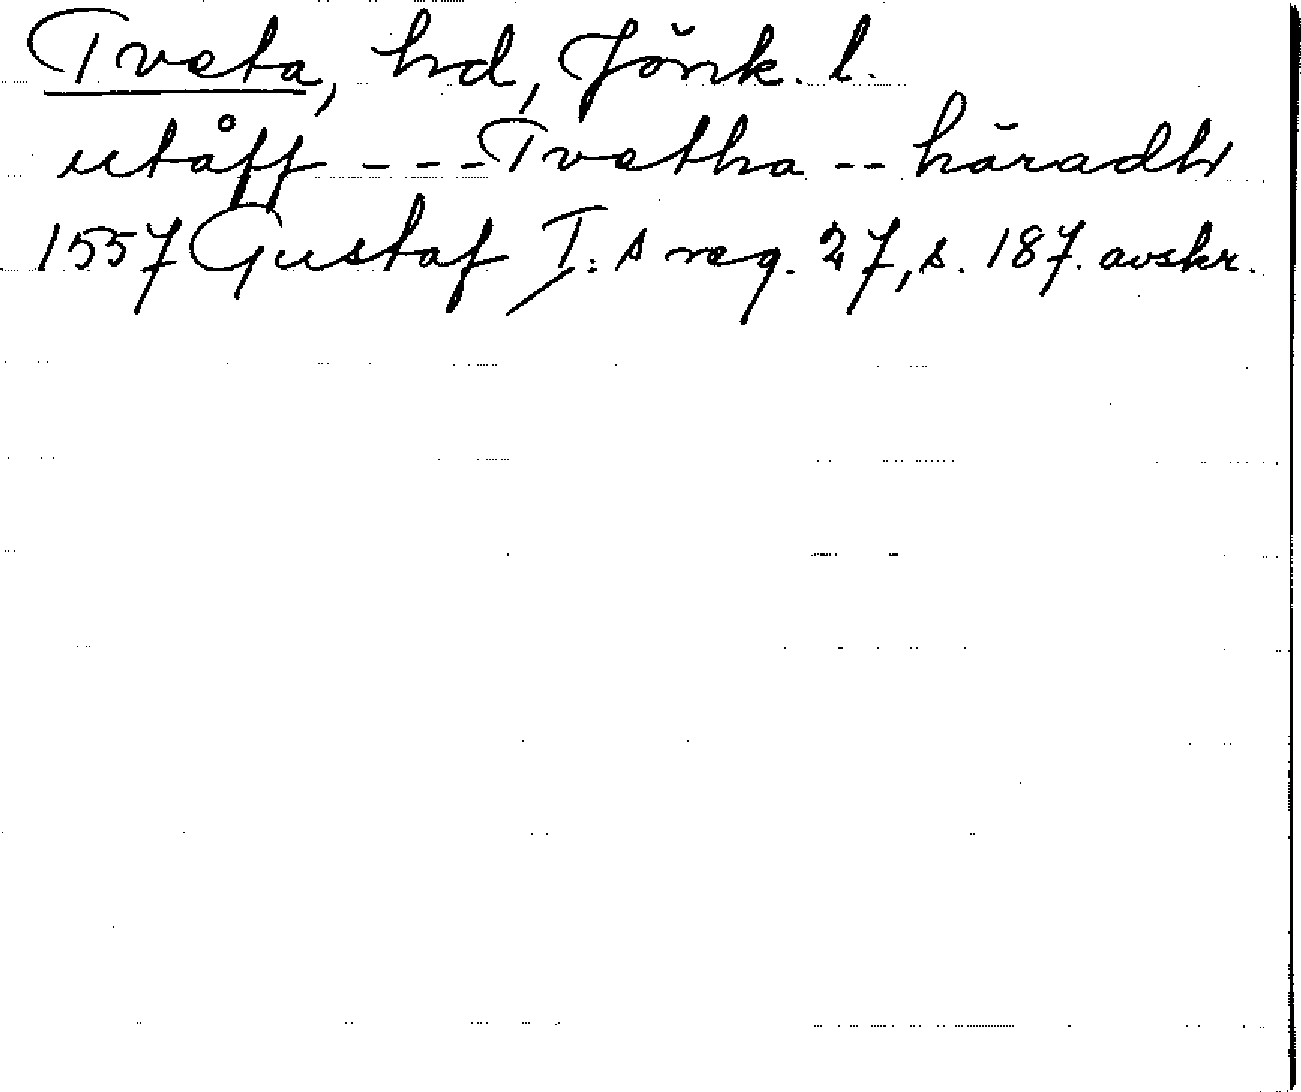 Tveta, hd, Jönk. l.
utåff - - - Tvetha - - häradh
1557 Gustaf I:s reg. 27, s. 187. avskr.